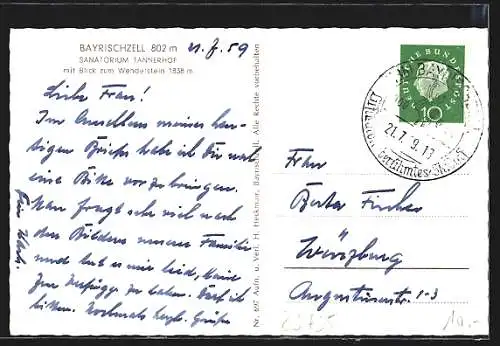 BAYRISCHZELL 802 m
SANATORIUM TANNERHOF
mit Blick zum Wendelstein 1838 m
21.7.59
Liebe Frau!
Im Anschluss meines heu-
tigen Briefes habe ich für
eine Bitte vorzubringen.
Man fragt sehr viel nach
den Bildern unserer Familie
und tut es mir leid, keine
zur Verfügg. zu haben. Darf ich
bitten. Nochmals herzl. Grüße
Nr. 497 Aufn. u. Verl. H. Heckmair, Bayrischzell. Alle Rechte vorbehalten
DEUTSCHE BUNDESPOST
10
21.7.59.13
Frau
Berta Fischer
Würzburg
Augustinerstr. 1-3
10.-